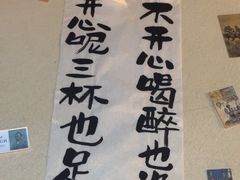 不开心喝醉也
开心呢三杯也足